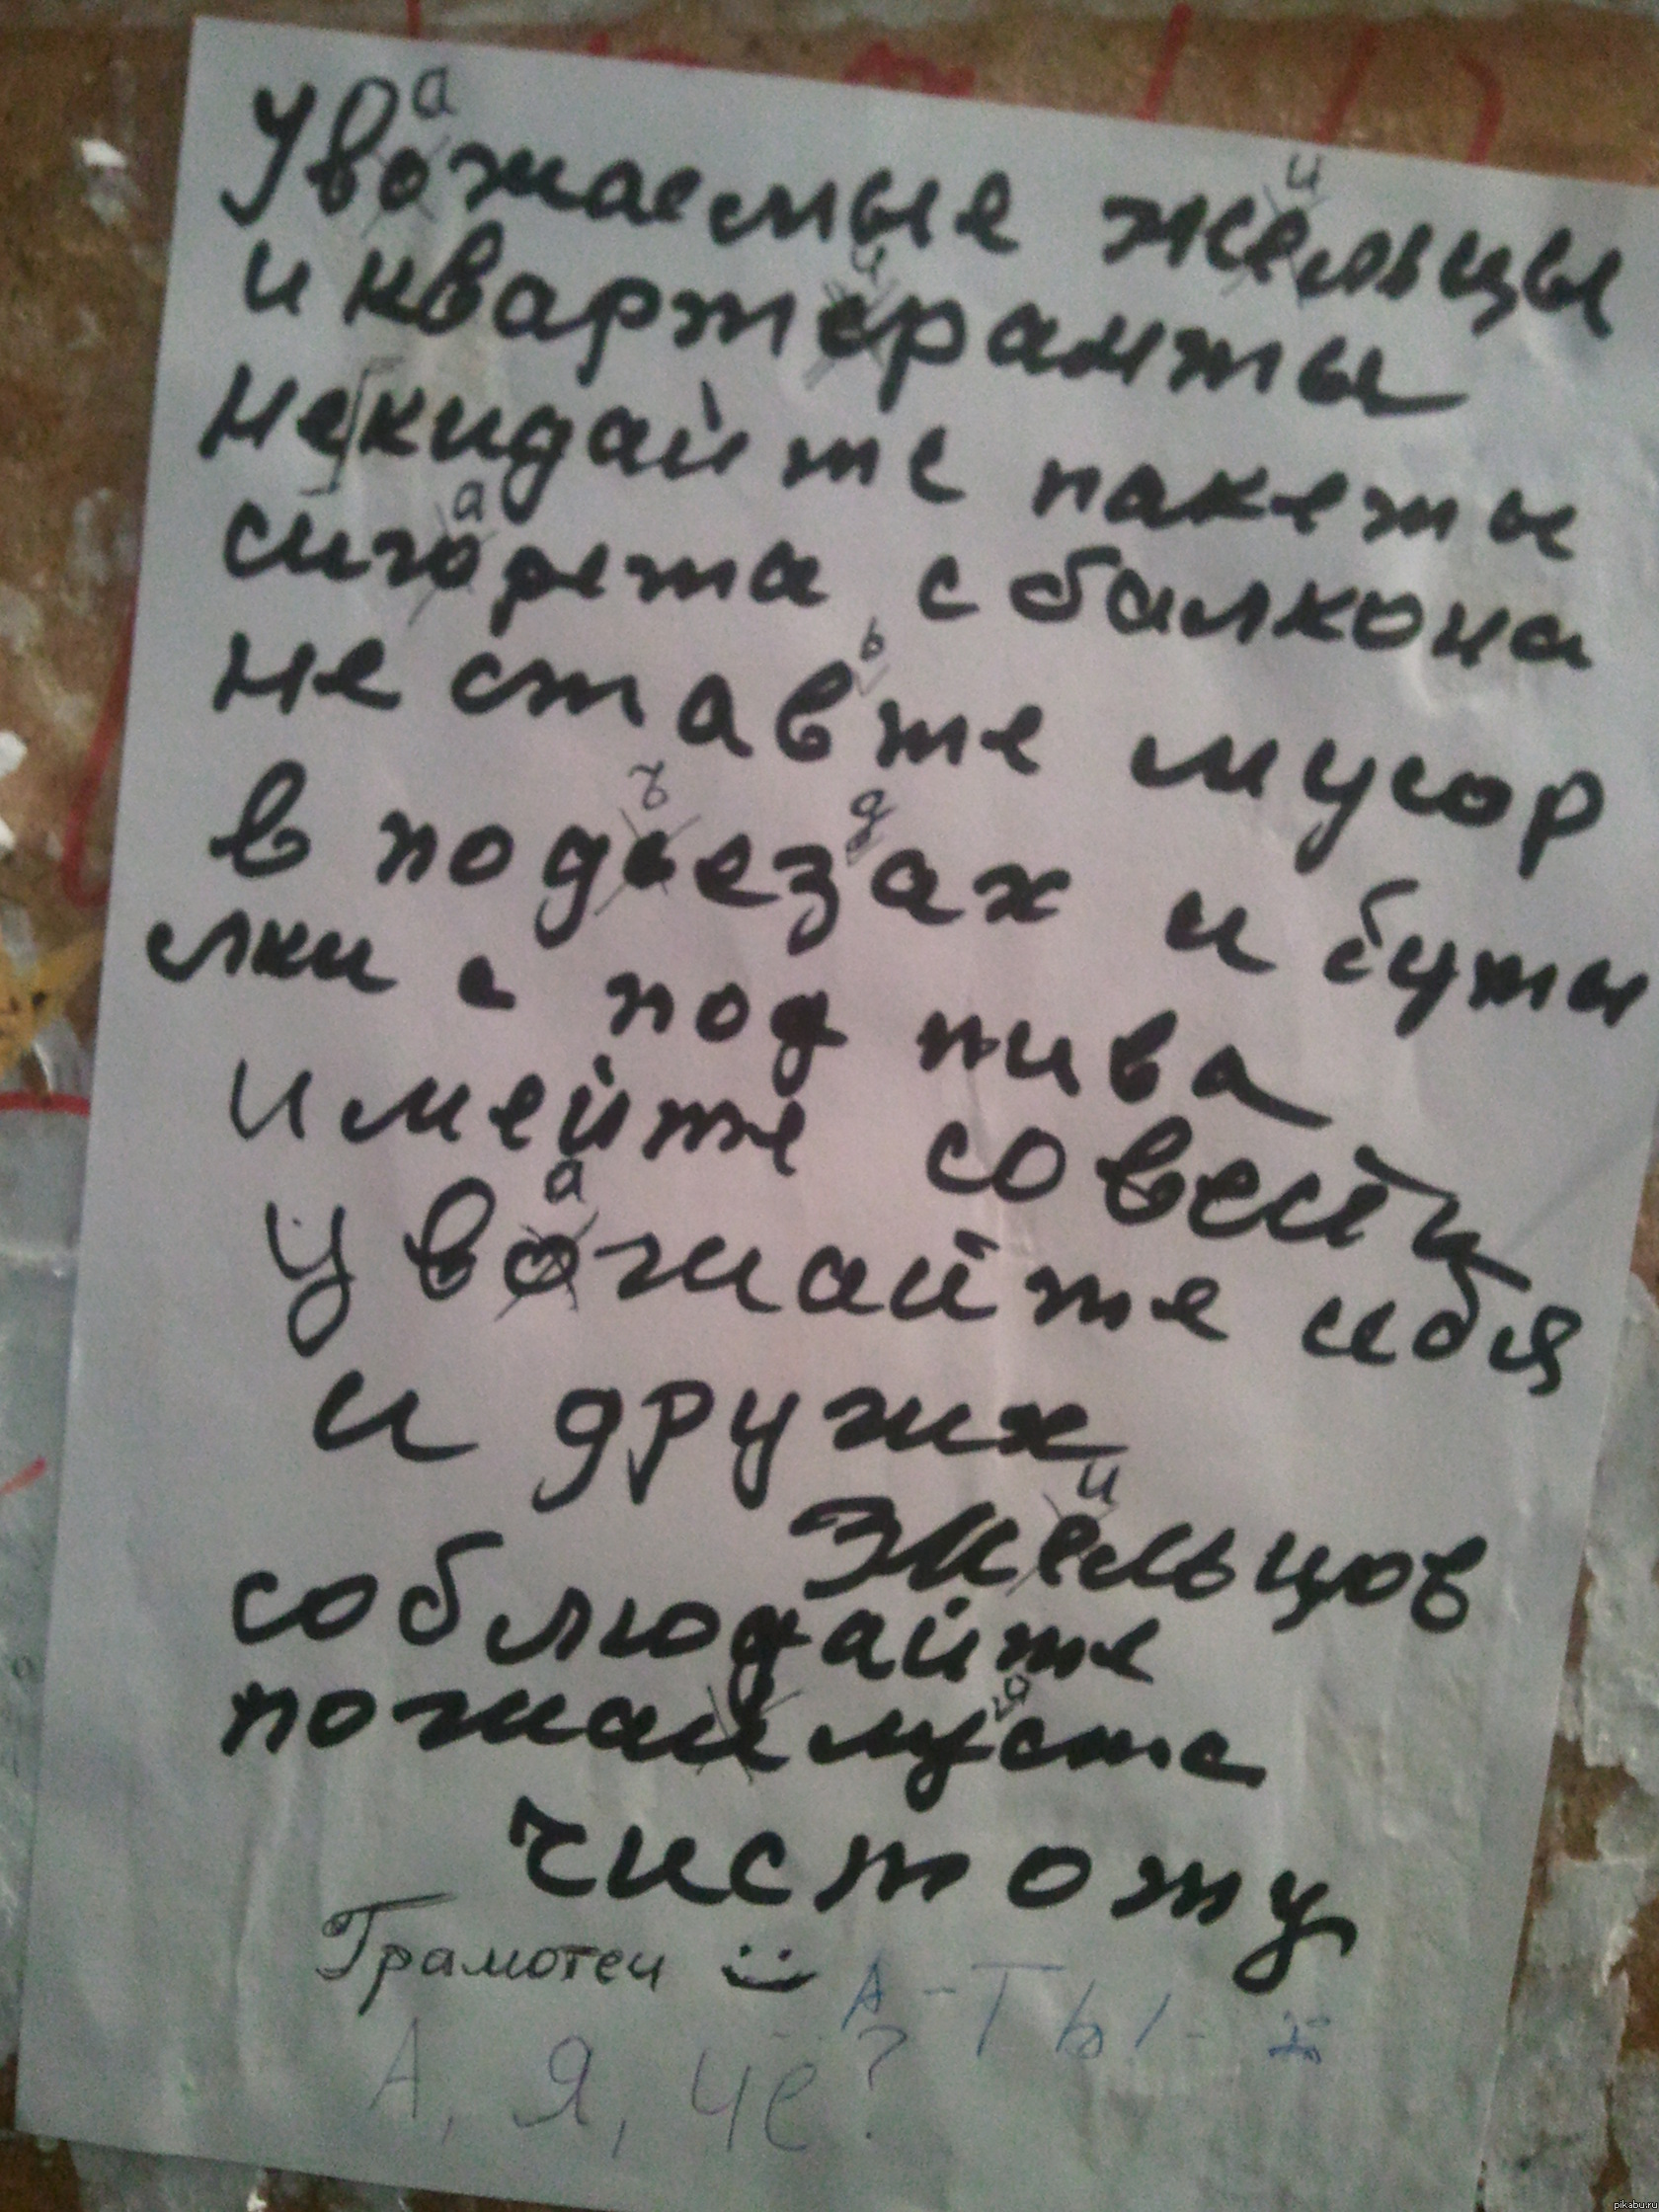 Увожаемые жельцы
и квартеранты
некидайте пакеты
сигорета с балкона
не ставте мусор
в подьезах и буты
лки с под пива
имейте совесть
увожайте себя
и других
жельцов
соблюдайте
пожаймуста
чистоту
Грамотеи
А-ТЫ-
А, Я, ЧЕ?
pikabu.ru